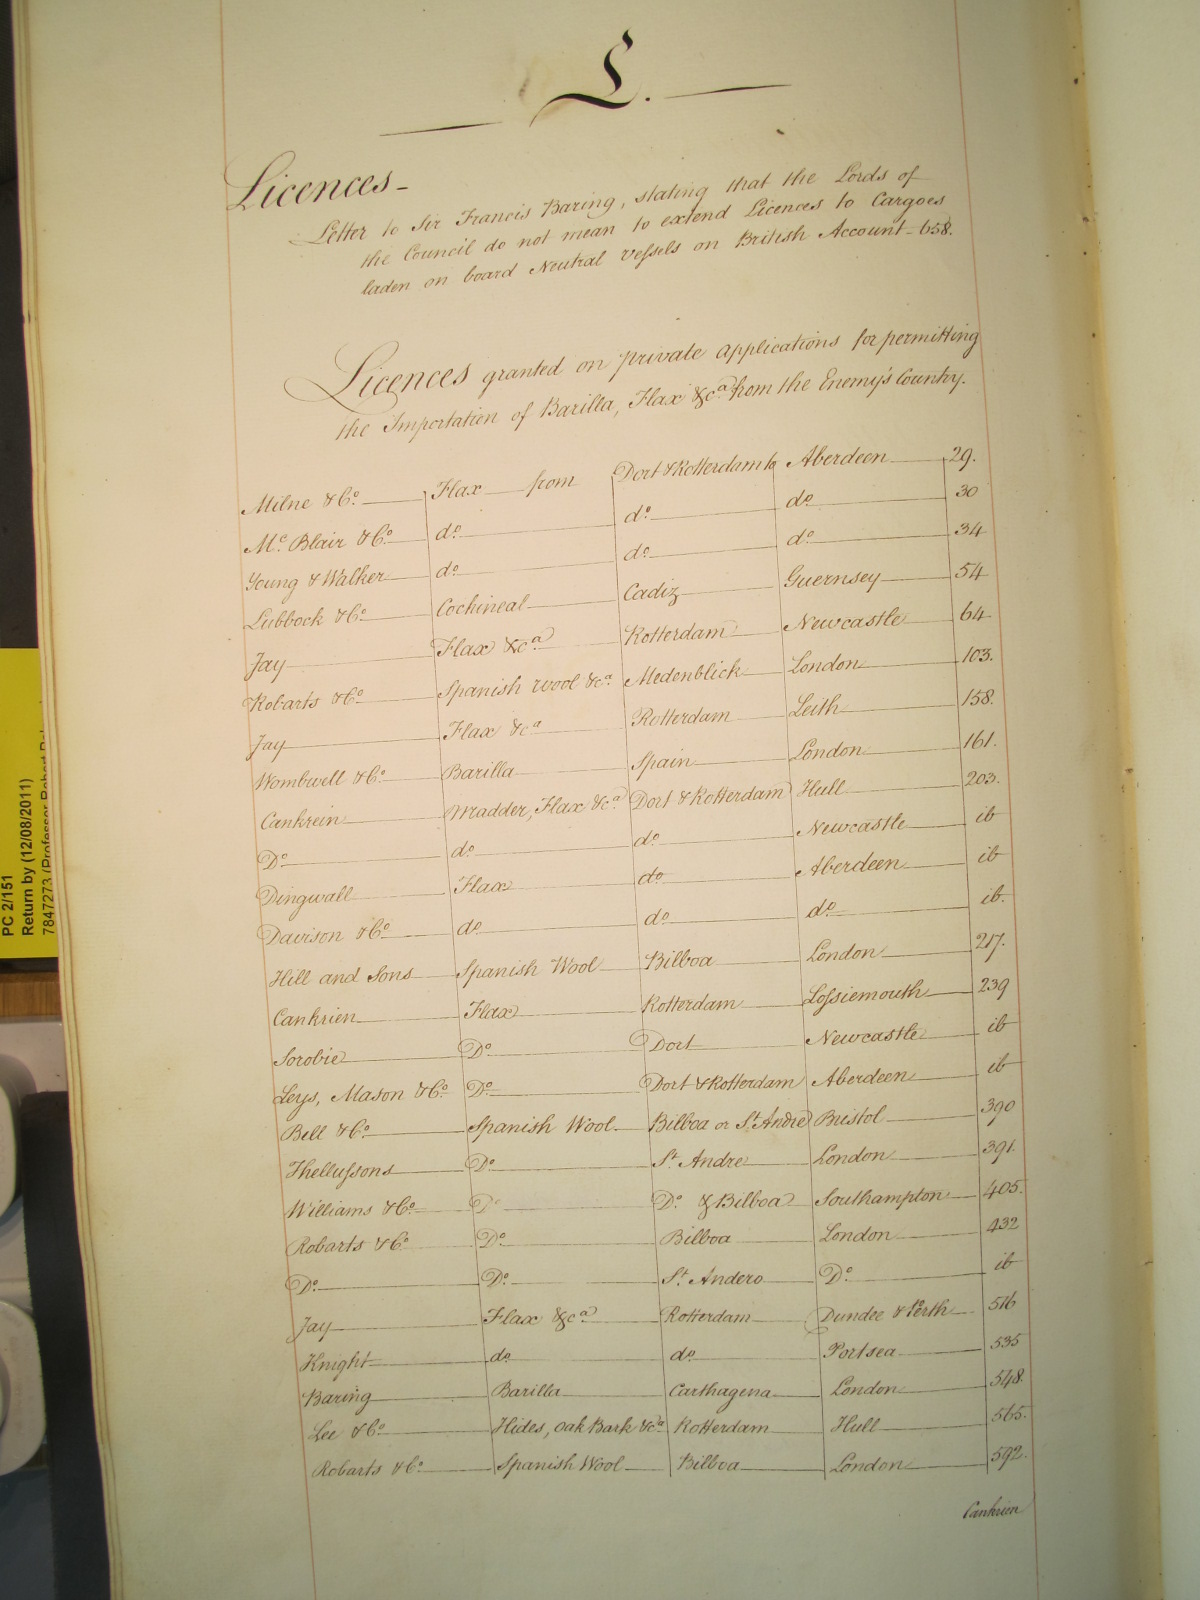 L.
Licences-
Letter to Sir Francis Baring, stating that the Lords of
the Council do not mean to extend Licences to Cargoes
laden on board Neutral Vessels on British Account - 658.
Licences granted on private applications for permitting
the Importation of Barilla, Flax &c.a from the Enemy's Country.
Milne & Co. Flax from Dort & Rotterdam to Aberdeen 29.
Mc. Blair & Co. do. do. do. 30
Young & Walker do. do. do. 34
Lubbock & Co. Cochineal Cadiz Guernsey 54
Jay Flax &c.a Rotterdam Newcastle 64
Robarts & Co. Spanish wool &c.a Medenblick London 103.
Jay Flax &c.a Rotterdam Leith 158.
Wombwell & Co. Barilla Spain London 161.
Cankrein Madder, Flax &c.a Dort & Rotterdam Hull 203.
Do. do. do. Newcastle ib
Dingwall Flax do. Aberdeen ib
Davison & Co. do. do. do. ib.
Hill and Sons Spanish Wool Bilboa London 217.
Cankrien Flax Rotterdam Lossiemouth 239
Sorobie Do. Dort Newcastle ib
Leys, Mason & Co. Do. Dort & Rotterdam Aberdeen ib
Bell & Co. Spanish Wool Bilboa or St. Andre Bristol 390
Thellussons Do. St. Andre London 391.
Williams & Co. Do. Do. & Bilboa Southampton 405.
Robarts & Co. Do. Bilboa London 432
Do. Do. St. Andero Do. ib
Jay Flax &c.a Rotterdam Dundee & Perth 516
Knight do. do. Portsea 535
Baring Barilla Carthagena London 548.
Lee & Co. Hides, Oak Bark &c.a Rotterdam Hull 565.
Robarts & Co. Spanish Wool Bilboa London 592.
Cankrien
PC 2/151
Return by (12/08/2011)
7847273 (Professor Robert